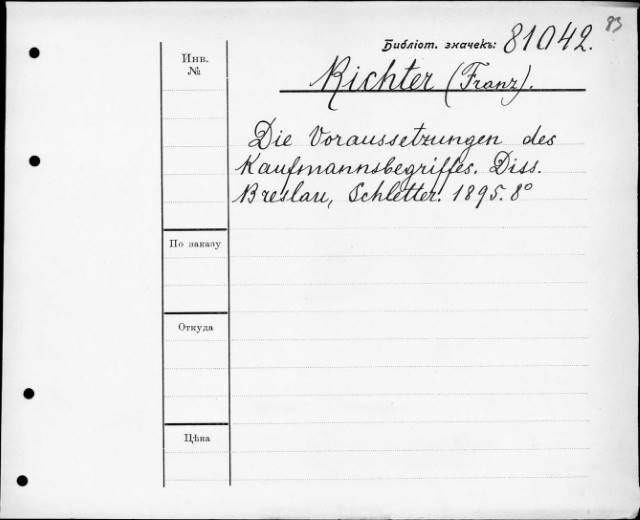 83
Библіот. значекъ: 81042.
Инв.
№
Richter (Franz).
Die Voraussetzungen des
Kaufmannsbegriffes. Diss.
Breslau, Schletter. 1895. 8°
По заказу
Откуда
Цѣна